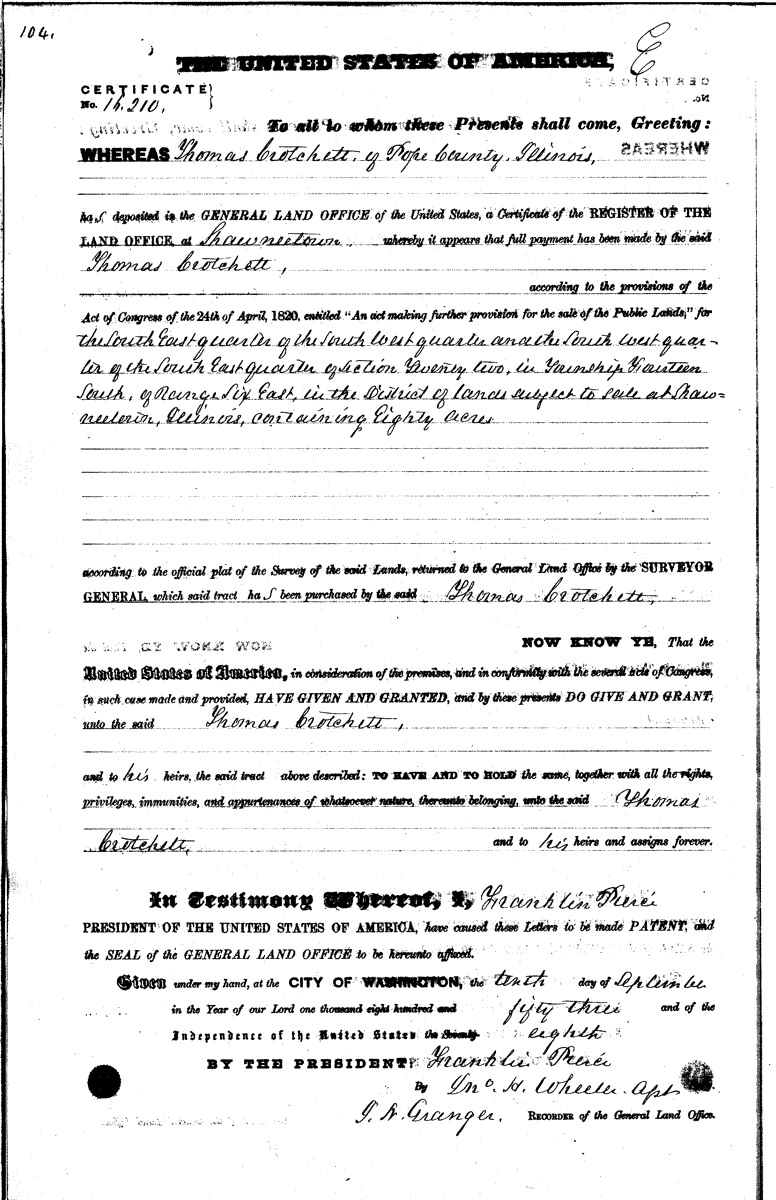 104.
THE UNITED STATES OF AMERICA, E
CERTIFICATE
No. 14.210,
To all to whom these Presents shall come, Greeting:
WHEREAS Thomas Crotchett, of Pope County, Illinois,
ha s deposited in the GENERAL LAND OFFICE of the United States, a Certificate of the REGISTER OF THE
LAND OFFICE, at Shawneetown whereby it appears that full payment has been made by the said
Thomas Crotchett,
according to the provisions of the
Act of Congress of the 24th of April, 1820, entitled "An act making further provision for the sale of the Public Lands," for
the South East quarter of the South West quarter and the South West quar-
ter of the South East quarter of Section Twenty two, in Township Fourteen
South, of Range Six East, in the District of lands subject to sale at Shaw=
neetown, Illinois, containing Eighty acres
according to the official plat of the Survey of the said Lands, returned to the General Land Office by the SURVEYOR
GENERAL, which said tract ha s been purchased by the said Thomas Crotchett,
NOW KNOW YE, That the
United States of America, in consideration of the premises, and in conformity with the several acts of Congress,
in such case made and provided, HAVE GIVEN AND GRANTED, and by these presents DO GIVE AND GRANT,
unto the said Thomas Crotchett,
and to his heirs, the said tract above described: TO HAVE AND TO HOLD the same, together with all the rights,
privileges, immunities, and appurtenances of whatsoever nature, thereunto belonging, unto the said Thomas
Crotchett, and to his heirs and assigns forever.
In Testimony Whereof, I, Franklin Pierce
PRESIDENT OF THE UNITED STATES OF AMERICA, have caused these Letters to be made PATENT, and
the SEAL of the GENERAL LAND OFFICE to be hereunto affixed.
Given under my hand, at the CITY OF WASHINGTON, the tenth day of September
in the Year of our Lord one thousand eight hundred and fifty three and of the
Independence of the United States the Seventy eighth
BY THE PRESIDENT: Franklin Pierce
By Jno. H. Wheeler
Granger, RECORDER of the General Land Office.